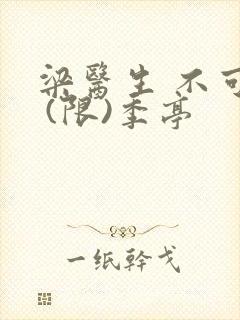 梁醫生 不可
(限)季亭
一纸幹戈